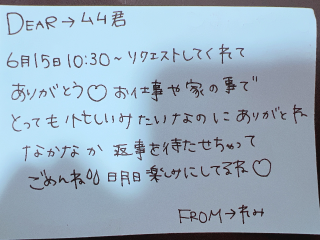 DEAR→ムム君
6月15日10:30~リクエストしてくれて
ありがとう♡お仕事や家の事で
とっても忙しいみたいなのにありがとね
なかなか返事を待たせちゃって
ごめんね💦明日楽しみにしてるね♡
FROM→れみ